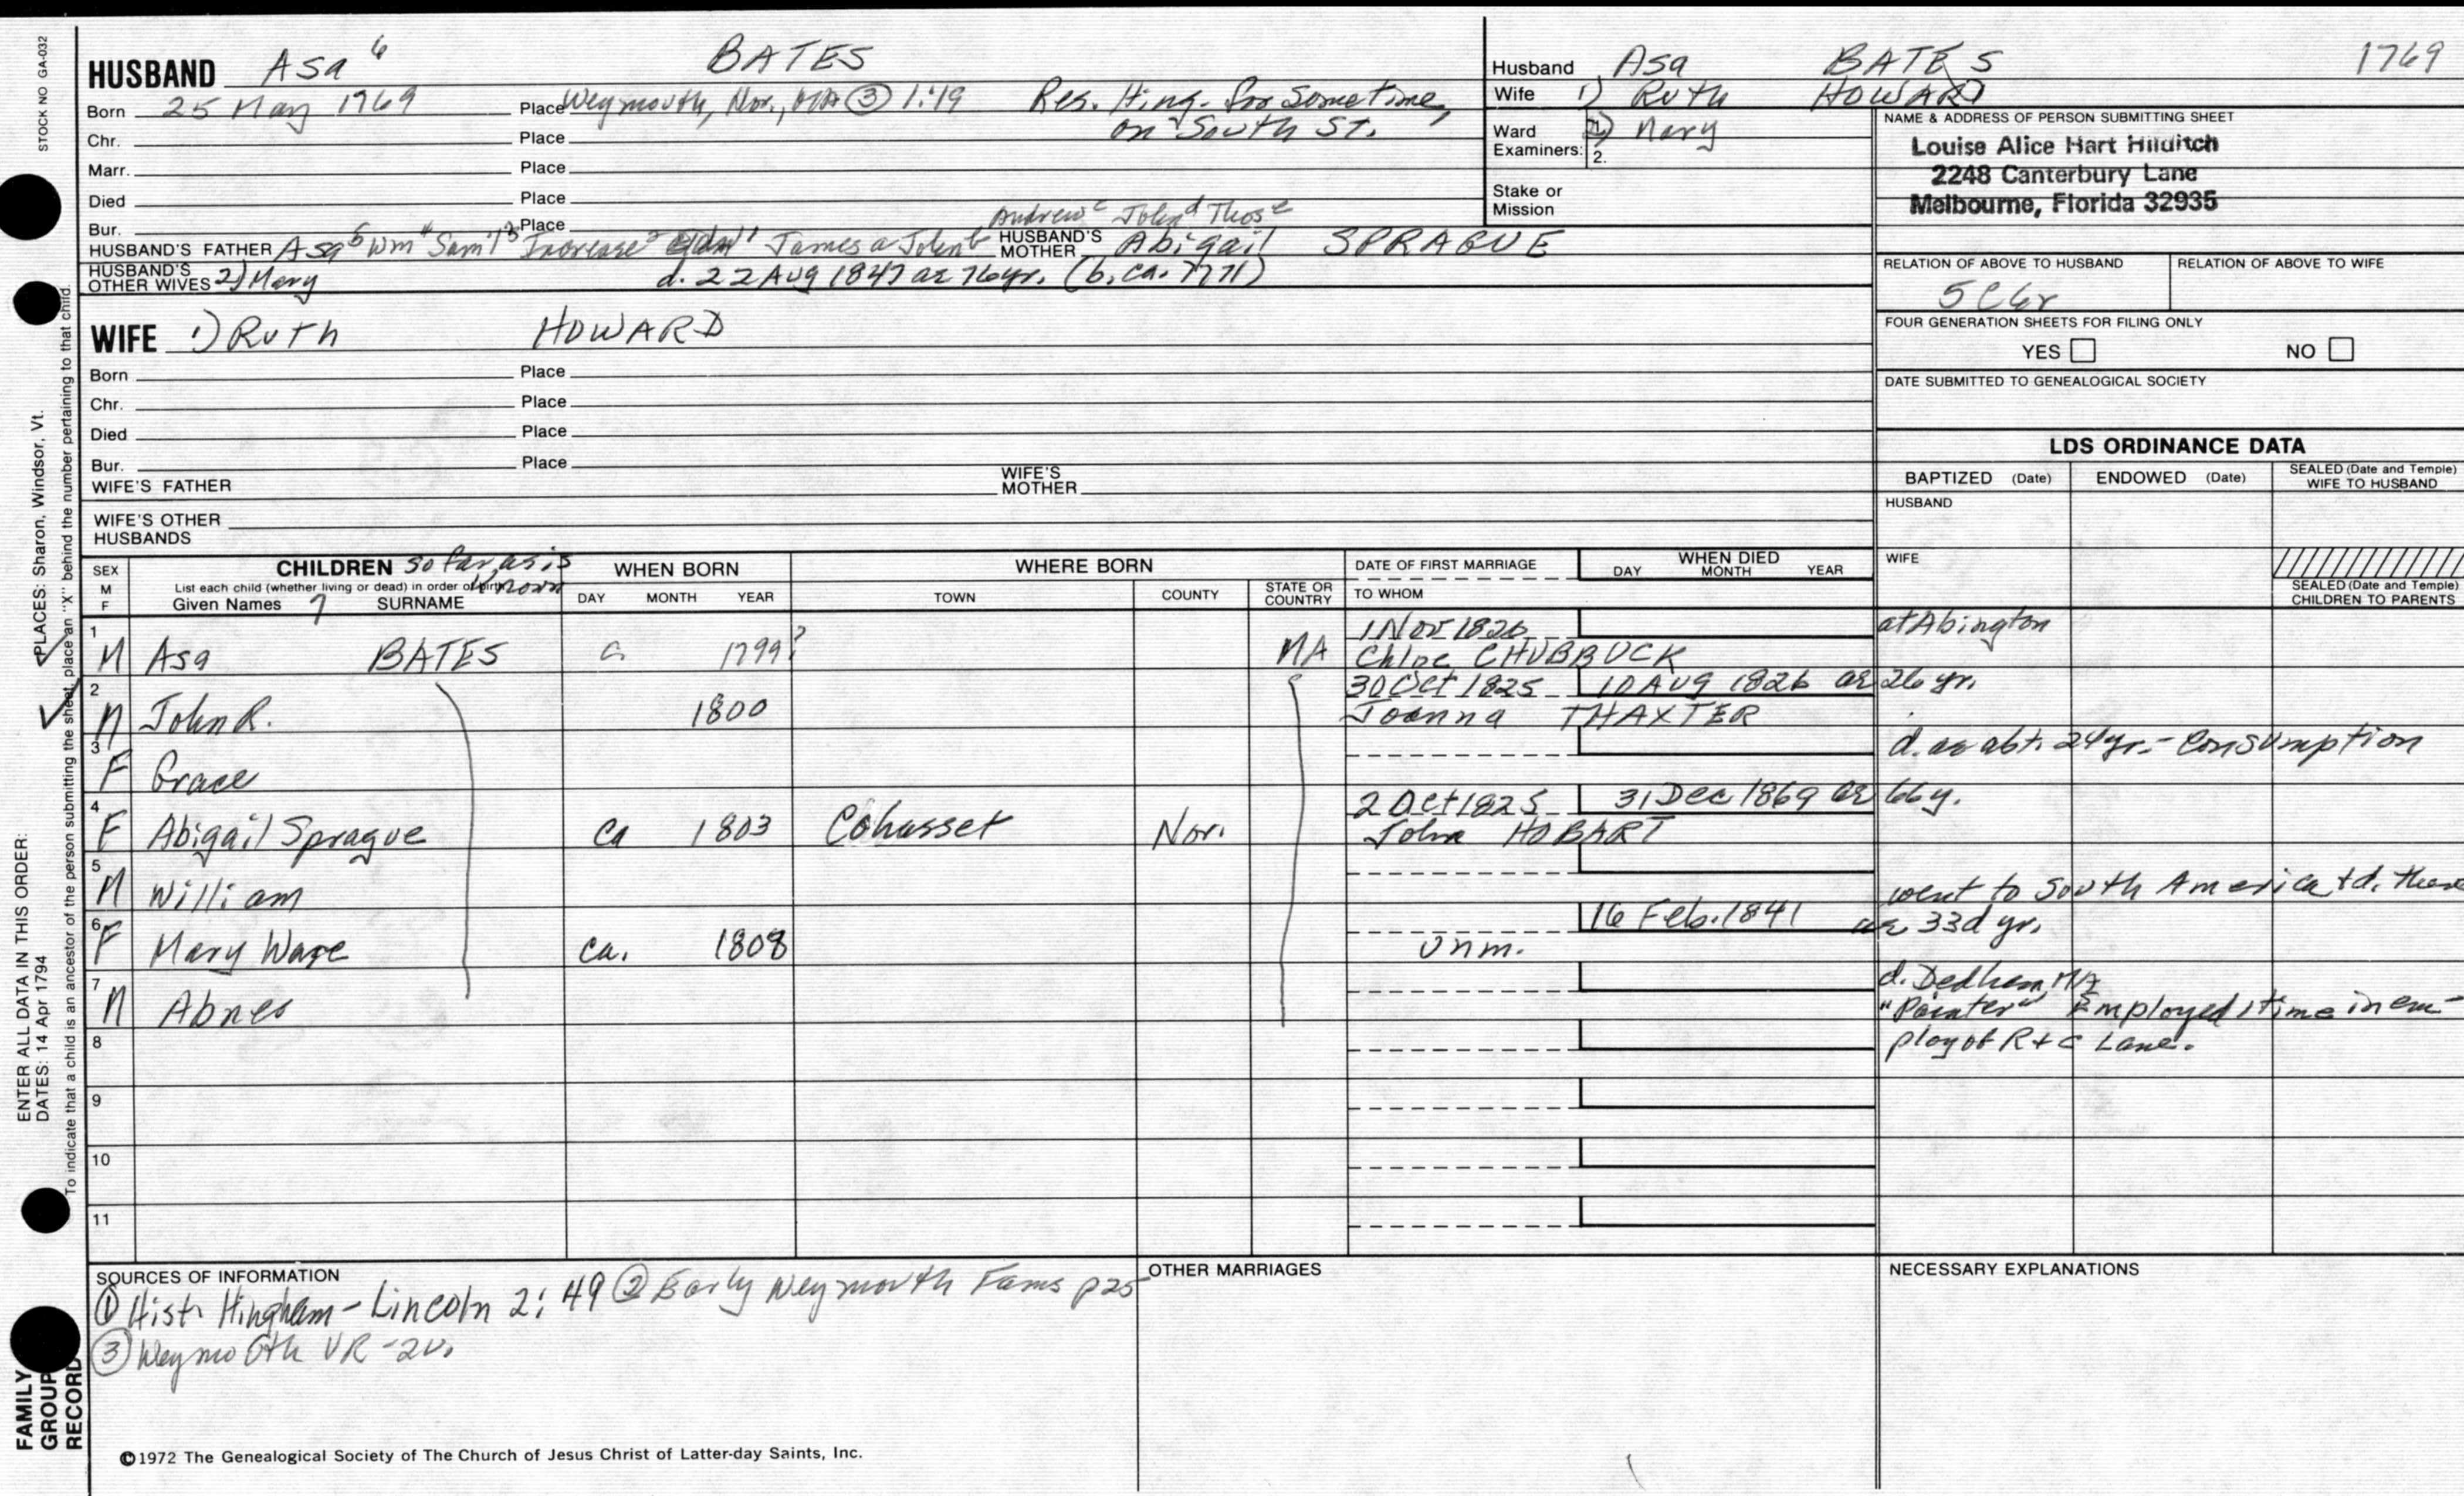 STOCK NO GA-032
HUSBAND Asa 6 BATES
Born 25 May 1769 Place Weymouth, Nor., MA ③ 1:19 Res. Hing. for sometime,
on South St.
Chr. Place
Marr. Place
Died Place
Bur. Place Andrew c John d Thos e
HUSBAND'S FATHER Asa 5 Wm 4 Sam'l 3 Increase 2 1 James a John b HUSBAND'S MOTHER Abigail SPRAGUE
HUSBAND'S OTHER WIVES 2) Mary d. 22 Aug 1847 ae 76yr. (b. ca. 1771)
Husband Asa BATES 1769
Wife 1) Ruth HOWARD
Ward Examiners: 2) Mary
2.
Stake or Mission
NAME & ADDRESS OF PERSON SUBMITTING SHEET
Louise Alice Hart Hilditch
2248 Canterbury Lane
Melbourne, Florida 32935
RELATION OF ABOVE TO HUSBAND RELATION OF ABOVE TO WIFE
5C6r
FOUR GENERATION SHEETS FOR FILING ONLY
YES NO
DATE SUBMITTED TO GENEALOGICAL SOCIETY
WIFE 1) Ruth HOWARD
Born Place
Chr. Place
Died Place
Bur. Place
WIFE'S FATHER WIFE'S MOTHER
WIFE'S OTHER HUSBANDS
LDS ORDINANCE DATA
BAPTIZED (Date) ENDOWED (Date) SEALED (Date and Temple) WIFE TO HUSBAND
HUSBAND
WIFE
SEALED (Date and Temple) CHILDREN TO PARENTS
SEX M F CHILDREN so far as is known
List each child (whether living or dead) in order of birth
Given Names 7 SURNAME
WHEN BORN DAY MONTH YEAR
WHERE BORN TOWN COUNTY STATE OR COUNTRY
DATE OF FIRST MARRIAGE TO WHOM
WHEN DIED DAY MONTH YEAR
1 M Asa BATES c. 1799? MA 1 Nov 1826 Chloe CHUBBUCK at Abington
2 M John R. 1800 30 Oct 1825 Joanna THAXTER 10 Aug 1826 ae 26 yr.
3 F Grace d. ae abt. 24 yr. - Consumption
4 F Abigail Sprague ca 1803 Cohasset Nor. 2 Oct 1825 John HOBART 31 Dec 1869 ae 66 y.
5 M William went to South America + d. there
6 F Mary Ware ca. 1808 unm. 16 Feb. 1841 ae 33d yr.
7 M Abner d. Dedham, MA
"Painter" Employed 1 time in em-
ploy of R + C Lane.
8
9
10
11
SOURCES OF INFORMATION
① Hist. Hingham - Lincoln 2:49 ② Early Weymouth Fams p25
③ Weymouth VR - 2v.
OTHER MARRIAGES
NECESSARY EXPLANATIONS
©1972 The Genealogical Society of The Church of Jesus Christ of Latter-day Saints, Inc.
FAMILY GROUP RECORD
ENTER ALL DATA IN THIS ORDER:
DATES: 14 Apr 1794
PLACES: Sharon, Windsor, Vt.
To indicate that a child is an ancestor of the person submitting the sheet, place an "X" behind the number pertaining to that child.